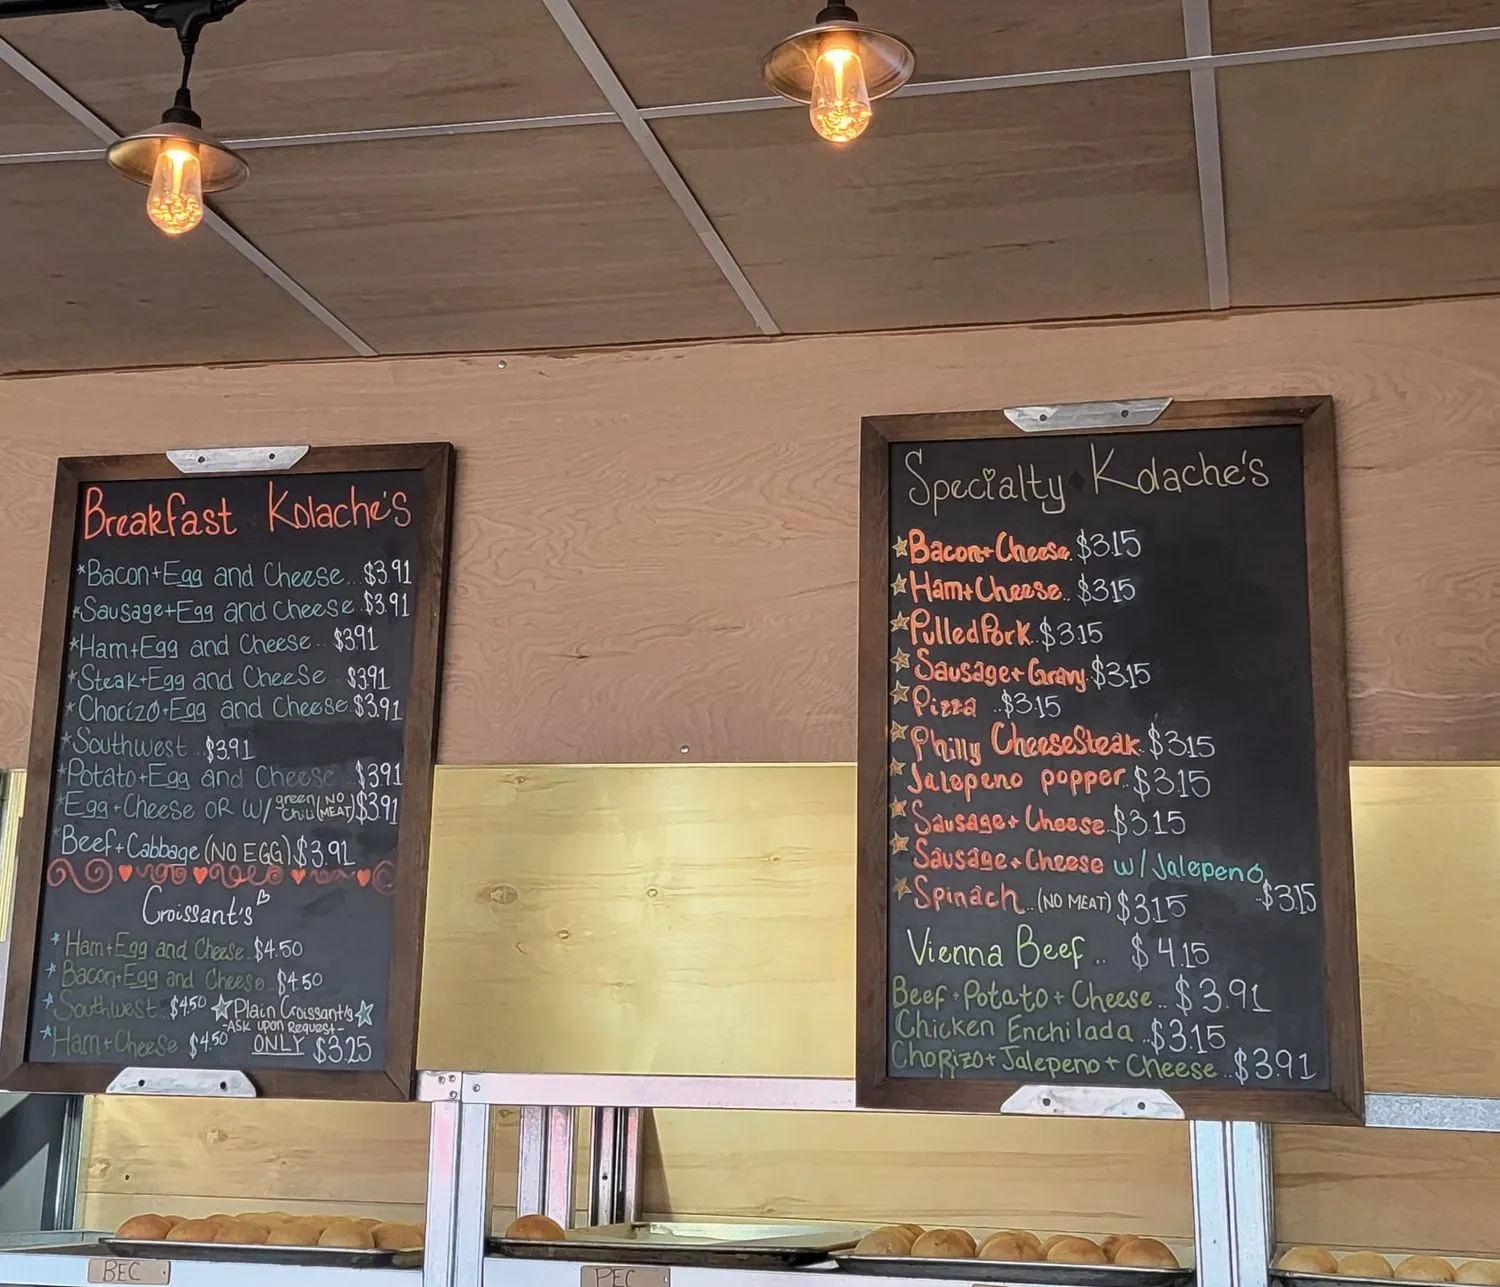 Breakfast Kolache's
*Bacon+Egg and Cheese...$3.91
*Sausage+Egg and Cheese.$3.91
*Ham+Egg and Cheese...$3.91
*Steak+Egg and Cheese..$3.91
*Chorizo+Egg and Cheese.$3.91
*Southwest..$3.91
*Potato+Egg and Cheese..$3.91
*Egg+Cheese OR W/ green chili (NO MEAT) $3.91
*Beef+Cabbage (NO EGG).$3.91
Croissant's
*Ham+Egg and Cheese..$4.50
*Bacon+Egg and Cheese..$4.50
*Southwest..$4.50
☆Plain Croissant's☆
-ASK upon Request-
ONLY $3.25
*Ham+Cheese $4.50
Specialty Kolache's
☆Bacon+Cheese.$3.15
☆Ham+Cheese..$3.15
☆Pulled Pork..$3.15
☆Sausage+Gravy.$3.15
☆Pizza ..$3.15
☆Philly CheeseSteak.$3.15
☆Jalopeno popper..$3.15
☆Sausage+Cheese.$3.15
☆Sausage+Cheese w/Jalepeno ..$3.15
☆Spinach..(NO MEAT) $3.15
Vienna Beef .. $4.15
Beef+Potato+Cheese..$3.91
Chicken Enchilada..$3.15
Chorizo+Jalepeno+Cheese..$3.91
BEC
PEC